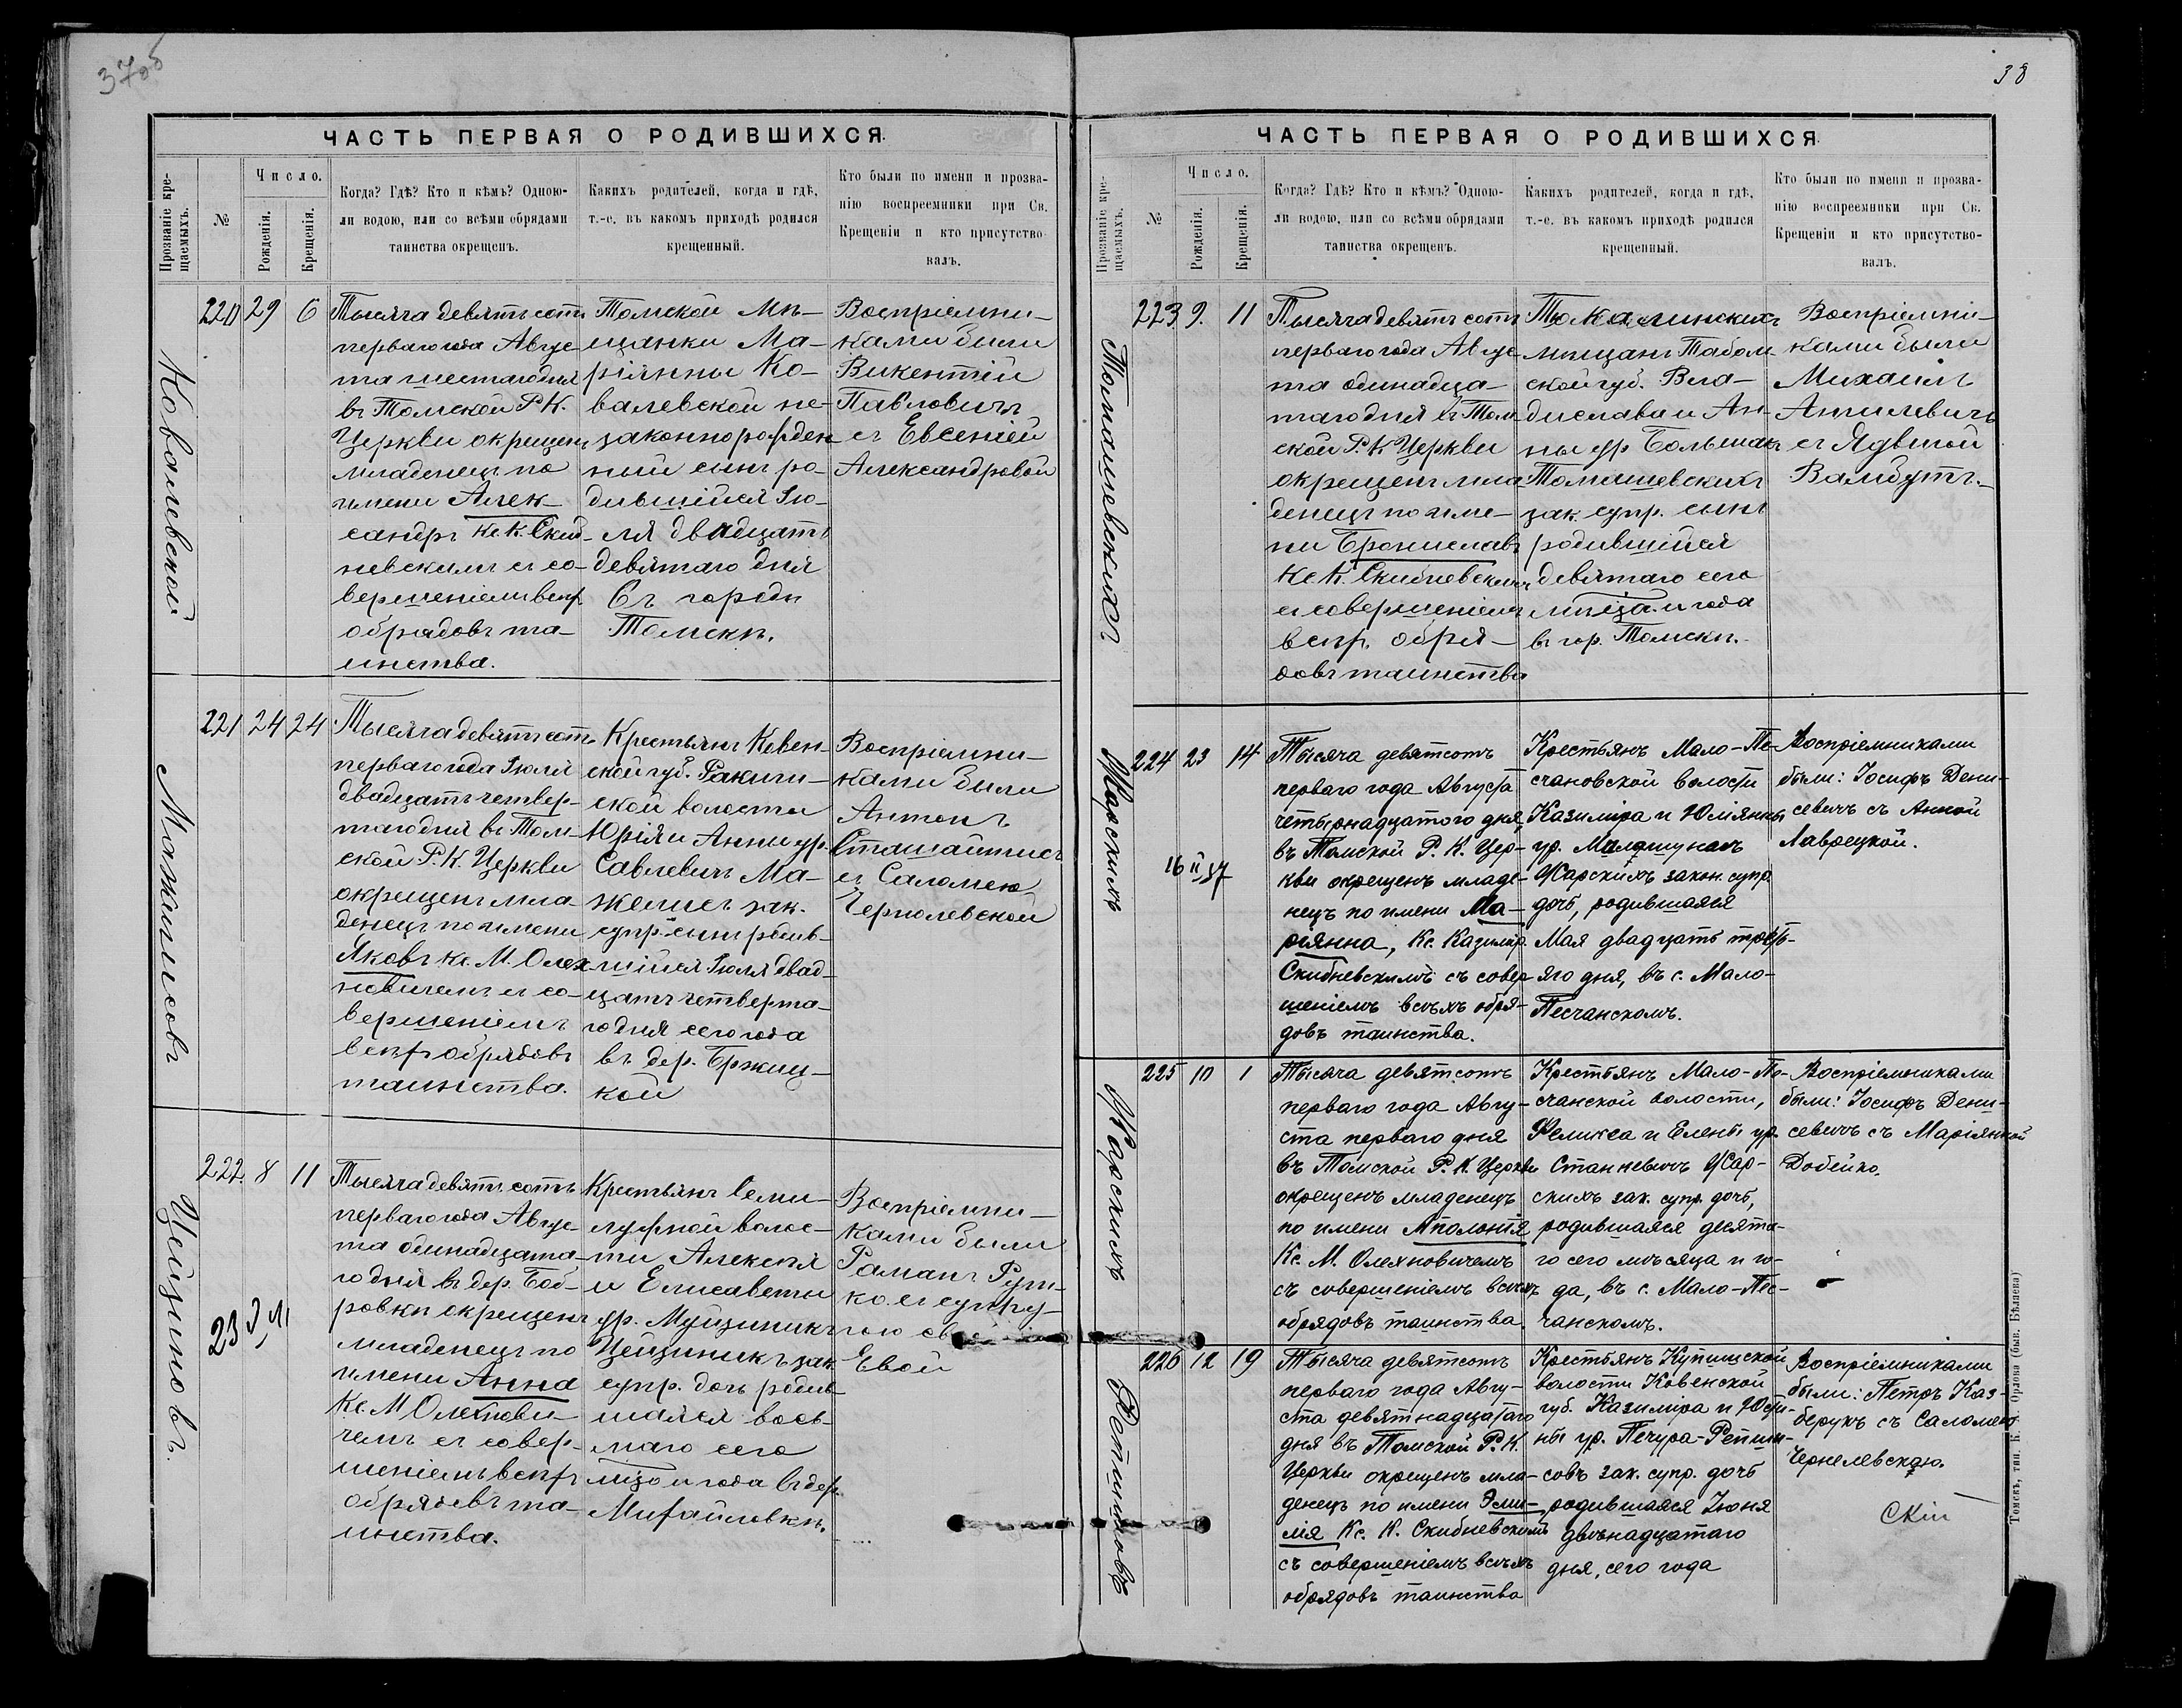 37об
ЧАСТЬ ПЕРВАЯ О РОДИВШИХСЯ.
Прозваніе кре-
щаемыхъ.
№
Число.
Рожденія.
Крещенія.
Когда? Гдѣ? Кто и кѣмъ? Одною-
ли водою, или со всѣми обрядами
таинства окрещенъ.
Какихъ родителей, когда и гдѣ,
т.-е. въ какомъ приходѣ родился
крещенный.
Кто были по имени и прозва-
нію воспреемники при Св.
Крещеніи и кто присутство-
валъ.
Ковалевской
220 29 6
Тысяча девятьсотъ
перваго года Авгус-
та шестаго дня
въ Томской Р. К.
Церкви окрещенъ
младенецъ по
имени Алек-
сандръ Кс. К. Скиб-
невскимъ съ со-
вершеніемъ всѣхъ
обрядовъ та-
инства.
Томской Мѣ-
щанки Ма-
ріянны Ко-
валевской не-
законнорожден-
ный сынъ ро-
дившійся Ію-
ля двадцать
девятаго дня
Въ городѣ
Томскѣ.
Воспріемни-
ками были
Викентій
Павловичъ
съ Евсеніей
Александровой
Мажылисовъ
221 24 24
Тысяча девятьсотъ
перваго года Іюля
двадцать четвер-
таго дня въ Том-
ской Р. К. Церкви
окрещенъ мла-
денецъ по имени
Яковъ Кс. М. Олех-
новичемъ съ со-
вершеніемъ
всѣхъ обрядовъ
таинства.
Крестьянъ Ковен-
ской губ. Ракиш-
ской волости
Юрія и Анны ур.
Савлевичъ Ма-
жылисъ зак.
супр. сынъ родив-
шійся Іюля двад-
цать четверта-
го дня сего года
въ дер. Бржиц-
кой
Воспріемни-
ками были
Антонъ
Сташайтисъ
съ Саломею
Чернолевской
Цейциновъ.
222 8 11
Тысяча девятьсотъ
перваго года Авгус-
та одинадцата-
го дня въ дер. Боб-
ровкѣ окрещенъ
младенецъ по
имени Анна
Кс. М Олехнови-
чемъ съ совер-
шеніемъ всѣхъ
обрядовъ та-
инства.
Крестьянъ Семи-
лужной волос-
ти Алексѣя
и Елисаветы
ур. Муйзиникъ
Цейциникъ зак.
супр. дочь родив-
шаяся вось-
маго сего
мца и года въ дер.
Михайловкѣ.
Воспріемни-
ками были
Раманъ Рут-
ко съ супру-
гою св
Евой
38
ЧАСТЬ ПЕРВАЯ О РОДИВШИХСЯ.
Прозваніе кре-
щаемыхъ.
№
Число.
Рожденія.
Крещенія.
Когда? Гдѣ? Кто и кѣмъ? Одною-
ли водою, или со всѣми обрядами
таинства окрещенъ.
Какихъ родителей, когда и гдѣ,
т.-е. въ какомъ приходѣ родился
крещенный.
Кто были по имени и прозва-
нію воспреемники при Св.
Крещеніи и кто присутство-
валъ.
Томашевскихъ
223 9. 11
Тысяча девятьсотъ
перваго года Авгус-
та одинадца-
таго дня въ Том-
ской Р. К. Церкви
окрещенъ мла-
денецъ по име-
ни Брониславъ
Кс К. Скибневскимъ
съ совершеніемъ
всѣхъ обря-
довъ таинства
Тюкалинскихъ
мѣщанъ Табол-
ской губ. Вла-
дислава и Ан-
ны ур Большакъ
Томашевскихъ
зак. супр. сынъ
родившійся
девятаго сего
мѣсца. и года
въ гор. Томскѣ.
Воспріемни-
ками были
Михаилъ
Анилевичъ
съ Ядвигой
Валибутъ.
Жарскихъ
224 23 14
16 II 37
Тысяча девятсотъ
перваго года Августа
четырнадцатого дня,
въ Томской Р. К. Цер-
кви окрещенъ младе-
нецъ по имени Ма-
ріянна, Кс. Казимір.
Скибневскимъ съ совер-
шеніемъ всѣхъ обря-
довъ таинства.
Крестьянъ Мало-Пе-
счановской волости
Казиміра и Юліянны
ур. Малашунасъ
Жарскихъ закон. супр.
дочь, родившаяся
Мая двадцать треть-
яго дня, въ с. Мало-
Песчанскомъ.
Воспріемниками
были: Іосифъ Дени-
севичъ съ Анной
Лаврецкой.
Жарскихъ
225 10 1
Тысяча девятсотъ
перваго года Авгу-
ста перваго дня
въ Томской Р. К. Церкви
окрещенъ младенецъ
по имени Аполонія
Кс. М. Олехновичемъ
съ совершеніемъ всѣхъ
обрядовъ таинства.
Крестьянъ Мало-Пе-
счанской волости,
Феликса и Елены ур.
Станкевичъ Жар-
скихъ зак. супр. дочь,
родившаяся десята-
го сего мѣсяца и го-
да, въ с. Мало-Пес-
чанскомъ.
Воспріемниками
были: Іосифъ Дени-
севичъ съ Маріянной
Добейко.
Репшисовъ
226 12 19
Тысяча девятсотъ
перваго года Авгу-
ста девятнадцатаго
дня въ Томской Р. К.
Церкви окрещенъ мла-
денецъ по имени Эми-
лія Кс. К. Скибневскимъ
съ совершеніемъ всѣхъ
обрядовъ таинства
Крестьянъ Купишской
волости Ковенской
губ. Казиміра и Юзи-
ны ур. Печура-Репши-
совъ зак. супр. дочь
родившаяся Іюня
двѣнадцатаго
дня, сего года
Воспріемниками
были: Петръ Каз-
берукъ съ Саломею
Чернелевскою.
Томскъ, тип. К. А. Орлова (быв. Бѣляева)